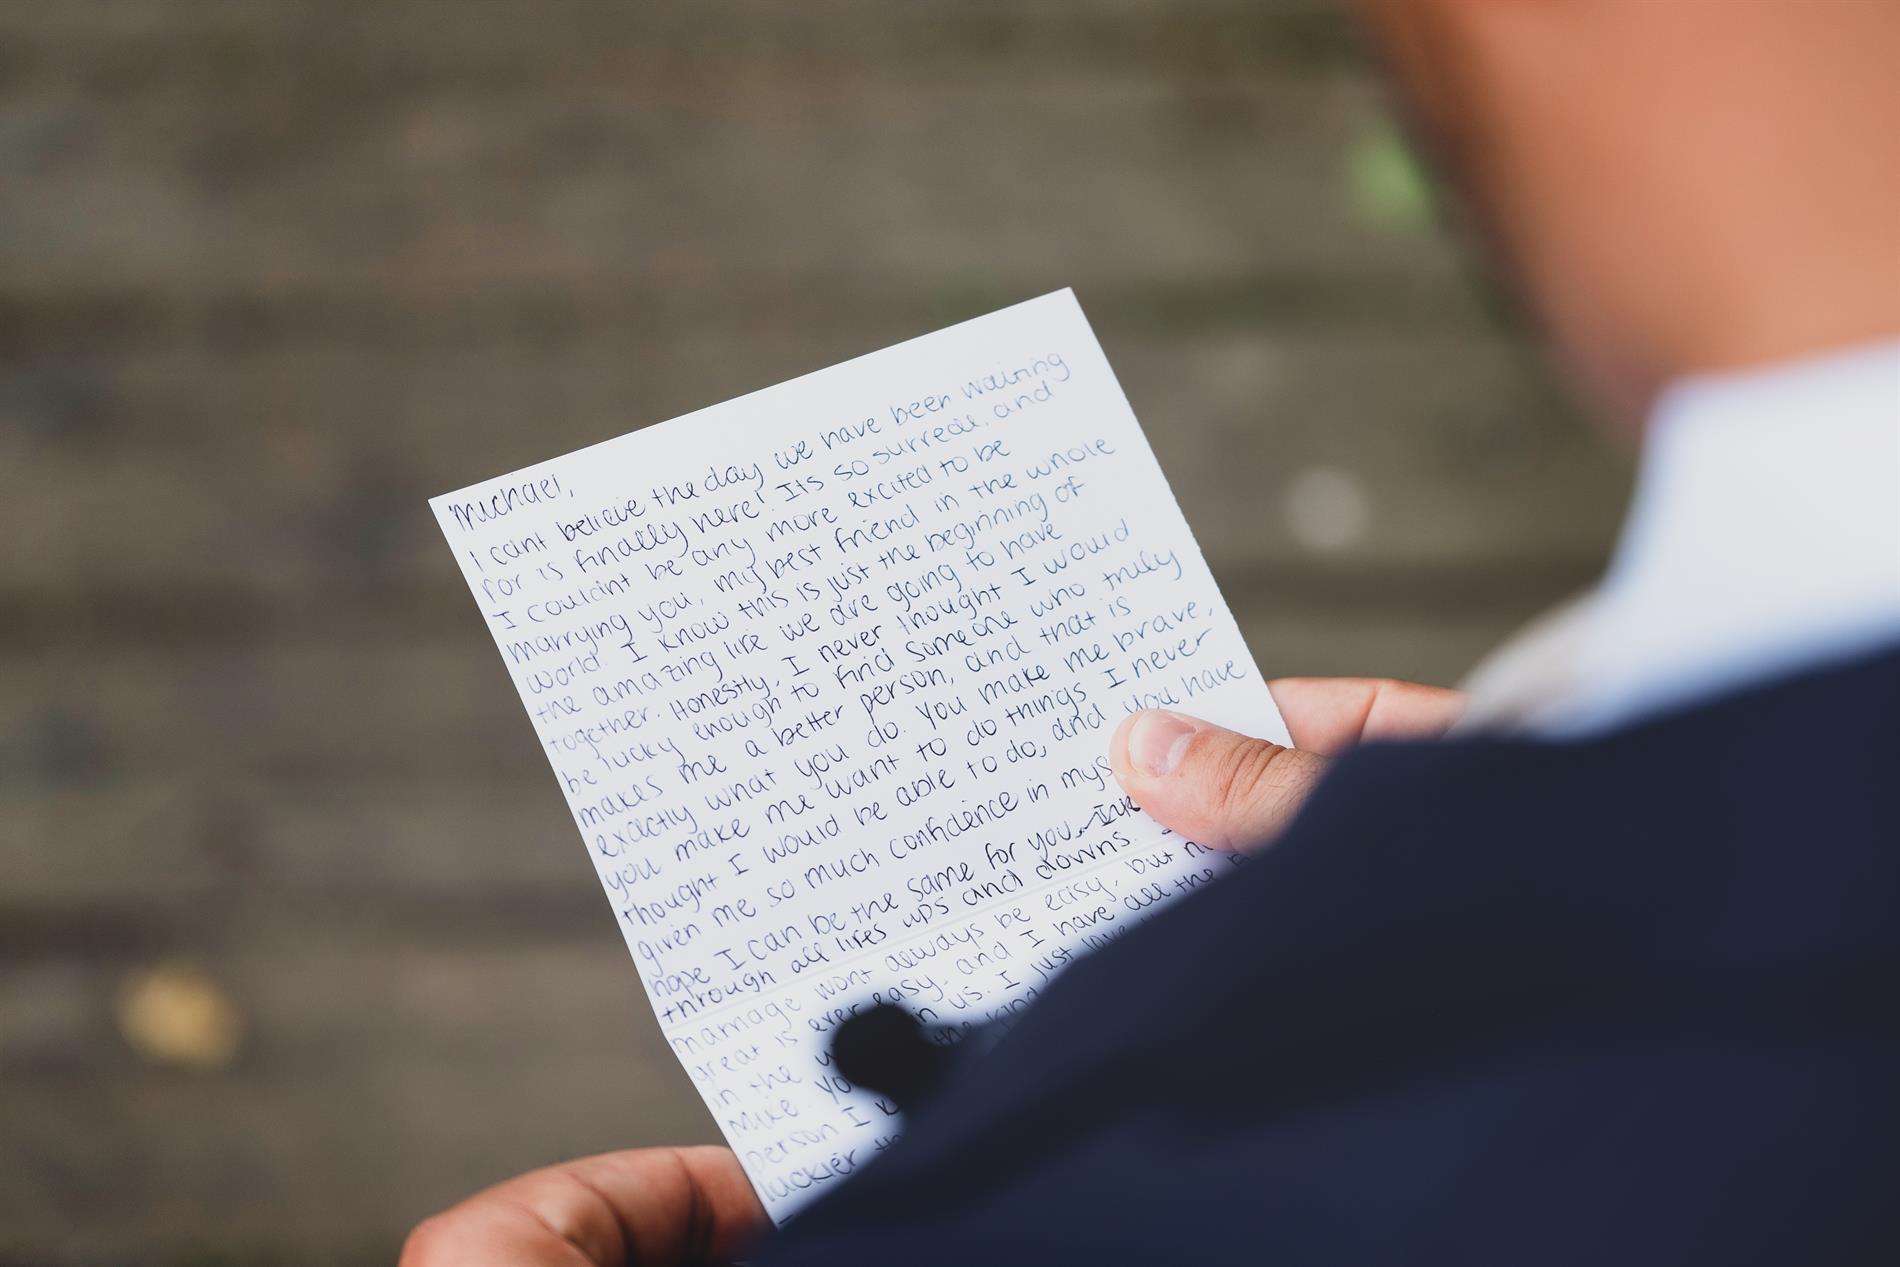 Michael,
I cant believe the day we have been waiting
for is finally here! Its so surreal, and
I couldnt be any more excited to be
marrying you, my best friend in the whole
world. I know this is just the beginning of
the amazing life we are going to have
together. Honestly, I never thought I would
be lucky enough to find someone who truly
makes me a better person, and that is
exactly what you do. You make me brave,
you make me want to do things I never
thought I would be able to do, and you have
given me so much confidence in mys
hope I can be the same for you
through all lifes ups and downs.
marriage wont always be easy, but
great is ever easy, and I have all the
in the in us. I just love
Mike. the kind
person I
luckier